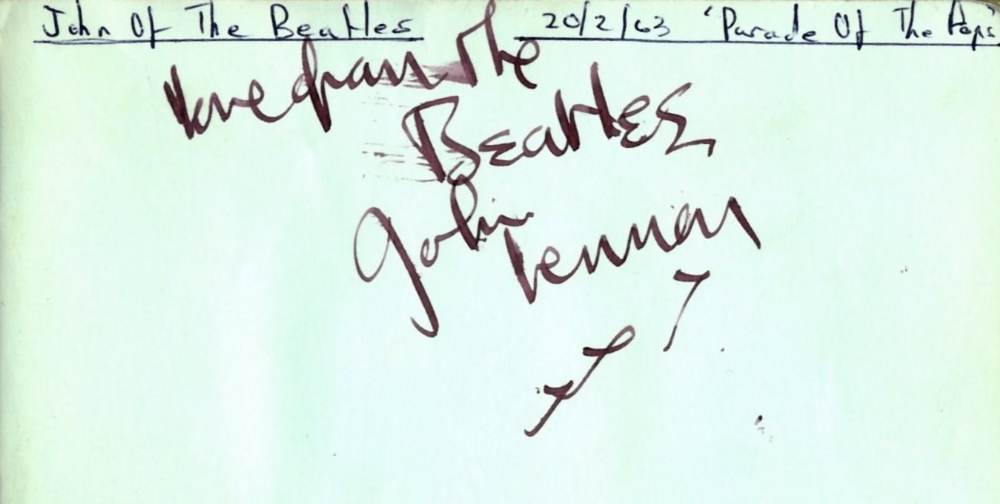 John Of The Beatles 20/2/63 'Parade Of The Pops'
love from the
Beatles
John
Lennon